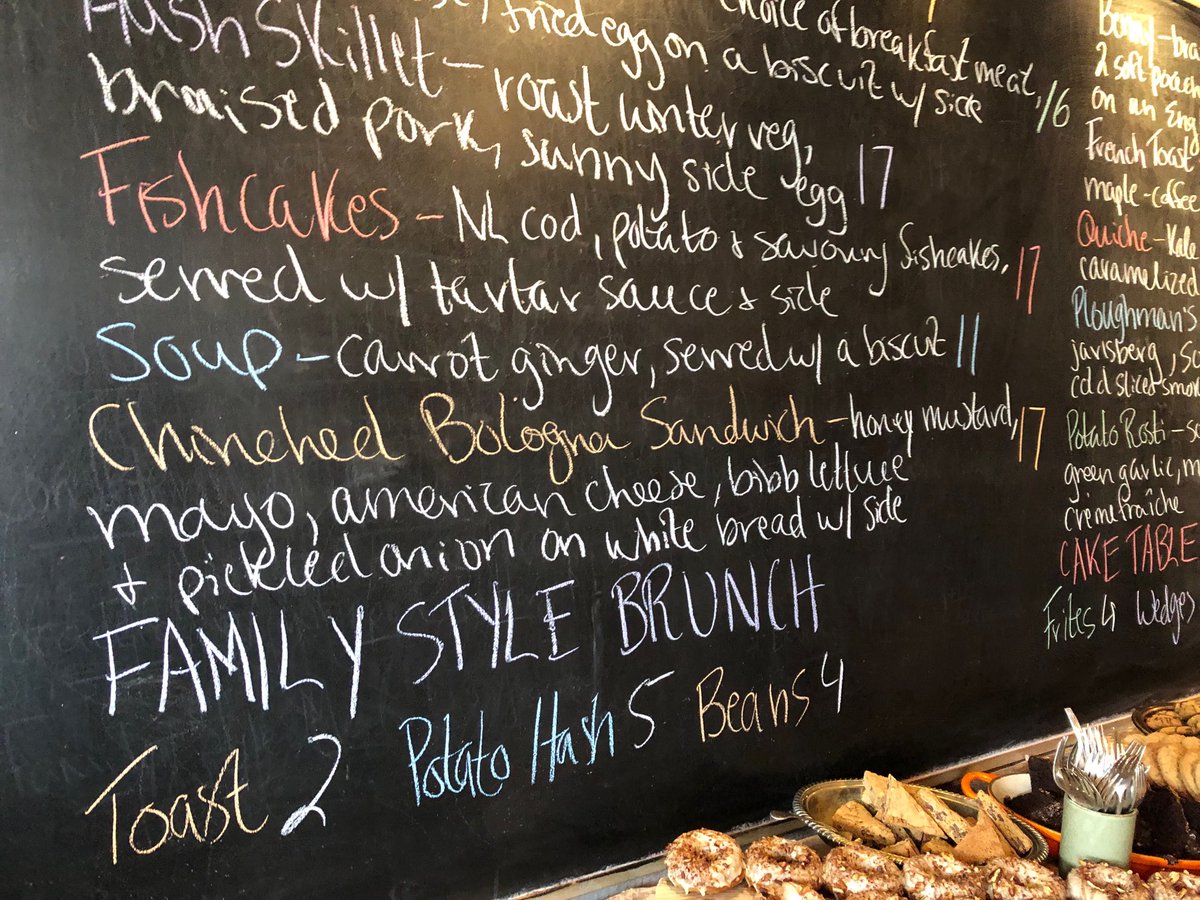 fried egg on a biscuit w/ side
choice of breakfast meat, 16
Hash Skillet - roast winter veg,
braised pork, sunny side egg 17
Fishcakes - NL cod, potato + savoury fishcakes, 17
served w/ tartar sauce + side
Soup - carrot ginger, served w/ a biscuit 11
Chinched Bologna Sandwich - honey mustard, 17
mayo, american cheese, bibb lettuce
+ pickled onion on white bread w/ side
FAMILY STYLE BRUNCH
Toast 2 Potato Hash 5 Beans 4
Benny - bra
2 soft poache
on an Eng
French Toast
maple - coffee
Quiche - Kale
caramelized
Ploughman's
jarlsberg,
cold sliced smok
Potato Rosti - s
green garlic, m
crème fraîche
CAKE TABLE
Frites 4 Wedges